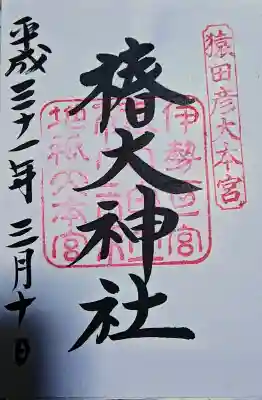 猿田彦大本宮
椿大神社
伊勢一宮
地祇大本宮
平成三十一年三月十日